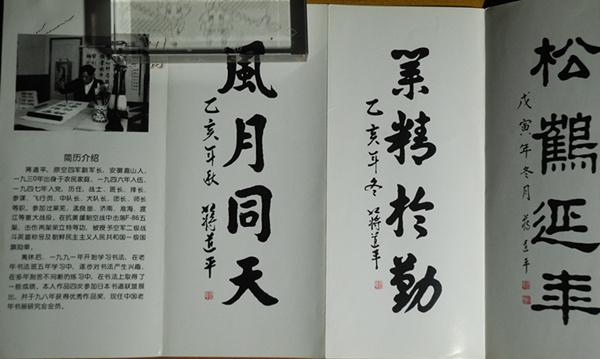 简历介绍
蒋道平，原空四军副军长，安徽嘉山人，
一九三0年出身于农民家庭，一九四六年入伍，
一九四七年入党，历任，战士、班长、排长、
参谋、飞行员、中队长、大队长、团长、师长
等职，参加过莱芜、孟良崮、济南、淮海、渡
江等重大战役，在抗美援朝空战中击落F-86五
架、击伤两架荣立特等功，被授予空军二级战
斗英雄称号及朝鲜民主主义人民共和国一级国
旗勋章。
离休后，一九九一年开始学习书法，在老
年书法班五年学习中，逐步对书法产生兴趣，
在多年刻苦不间断的练习中，在书法上取得了
一些成绩。本人作品四次参加日本书道联盟展
出，并于九八年获得优秀作品奖，现任中国老
年书画研究会会员。
風月同天
乙亥年秋 蒋道平
業精於勤
乙亥年冬 蒋道平
松鶴延年
戊寅年冬月 蒋道平